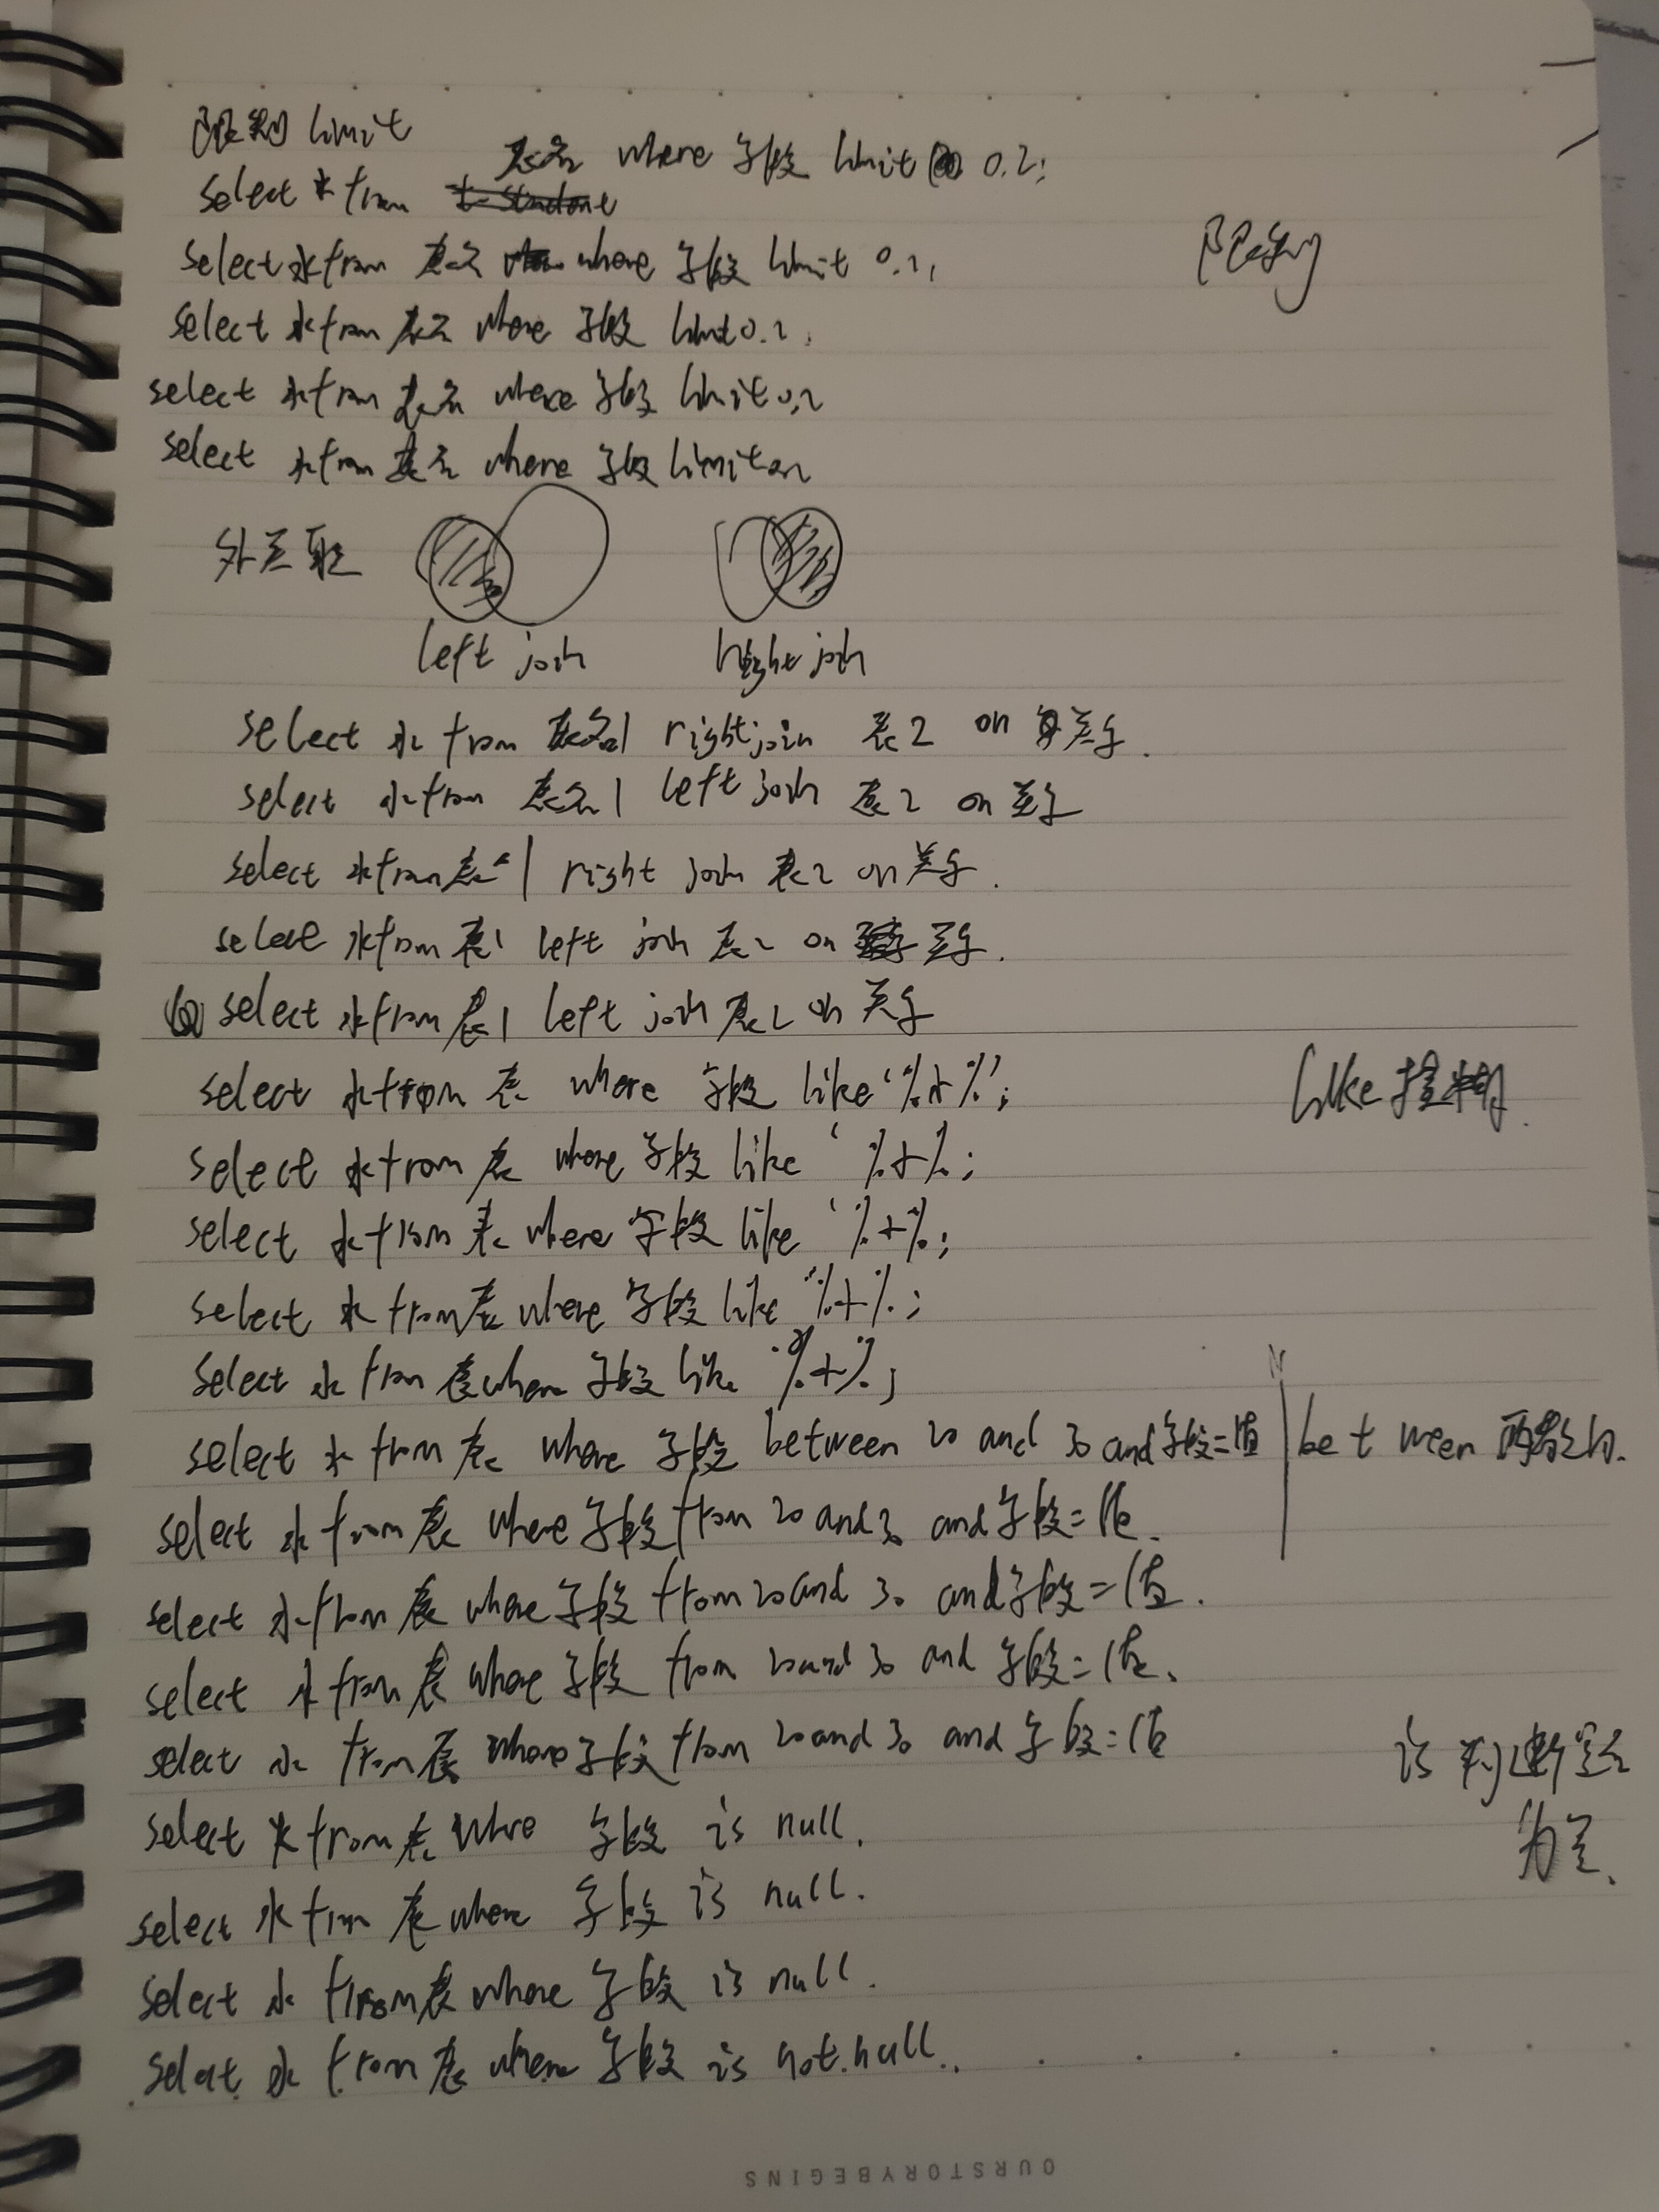 限制 limit
表名 where 字段 limit 0.2;
select * from
select * from 表名 where 字段 limit 0.2,
限制
select * from 表名 where 字段 limit 0.2,
select * from 表名 where 字段 limit 0,2
select * from 表名 where 字段 limit 0,2
外关联
left join right join
select * from 表名1 right join 表2 on 关系.
select * from 表名1 left join 表2 on 关系
select * from 表1 right join 表2 on 关系.
select * from 表1 left join 表2 on 关系.
select * from 表1 left join 表2 on 关系
select * from 表 where 字段 like '%+%';
like 模糊.
select * from 表 where 字段 like '%+%;
select * from 表 where 字段 like '%+%;
select * from 表 where 字段 like '%+%;
select * from 表 where 字段 like '%+%;
select * from 表 where 字段 between 20 and 30 and 字段=值
between 两者之间.
select * from 表 where 字段 from 20 and 30 and 字段=值.
select * from 表 where 字段 from 20 and 30 and 字段=值.
select * from 表 where 字段 from 20 and 30 and 字段=值.
select * from 表 where 字段 from 20 and 30 and 字段=值
is 判断是
为空.
select * from 表 where 字段 is null.
select * from 表 where 字段 is null.
select * from 表 where 字段 is null.
select * from 表 where 字段 is not null.
OURSTORYBEGINS